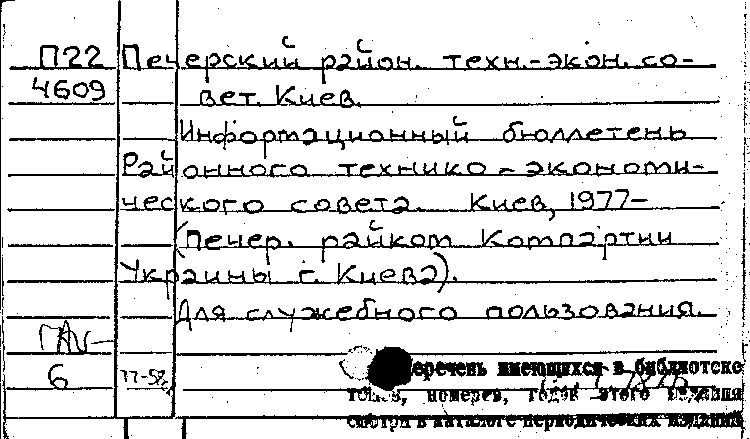 П22 Печерский район. техн.-экон. со-
4609 вет. Киев.
Информационный бюллетень
Районного технико-экономи-
ческого совета. Киев, 1977-
(Печер. райком Компартии
Украины г. Киева).
Для служебного пользования.
6
Перечень имеющихся в библиотеке
томов, номеров, годов этого издания
смотри в каталоге периодических изданий